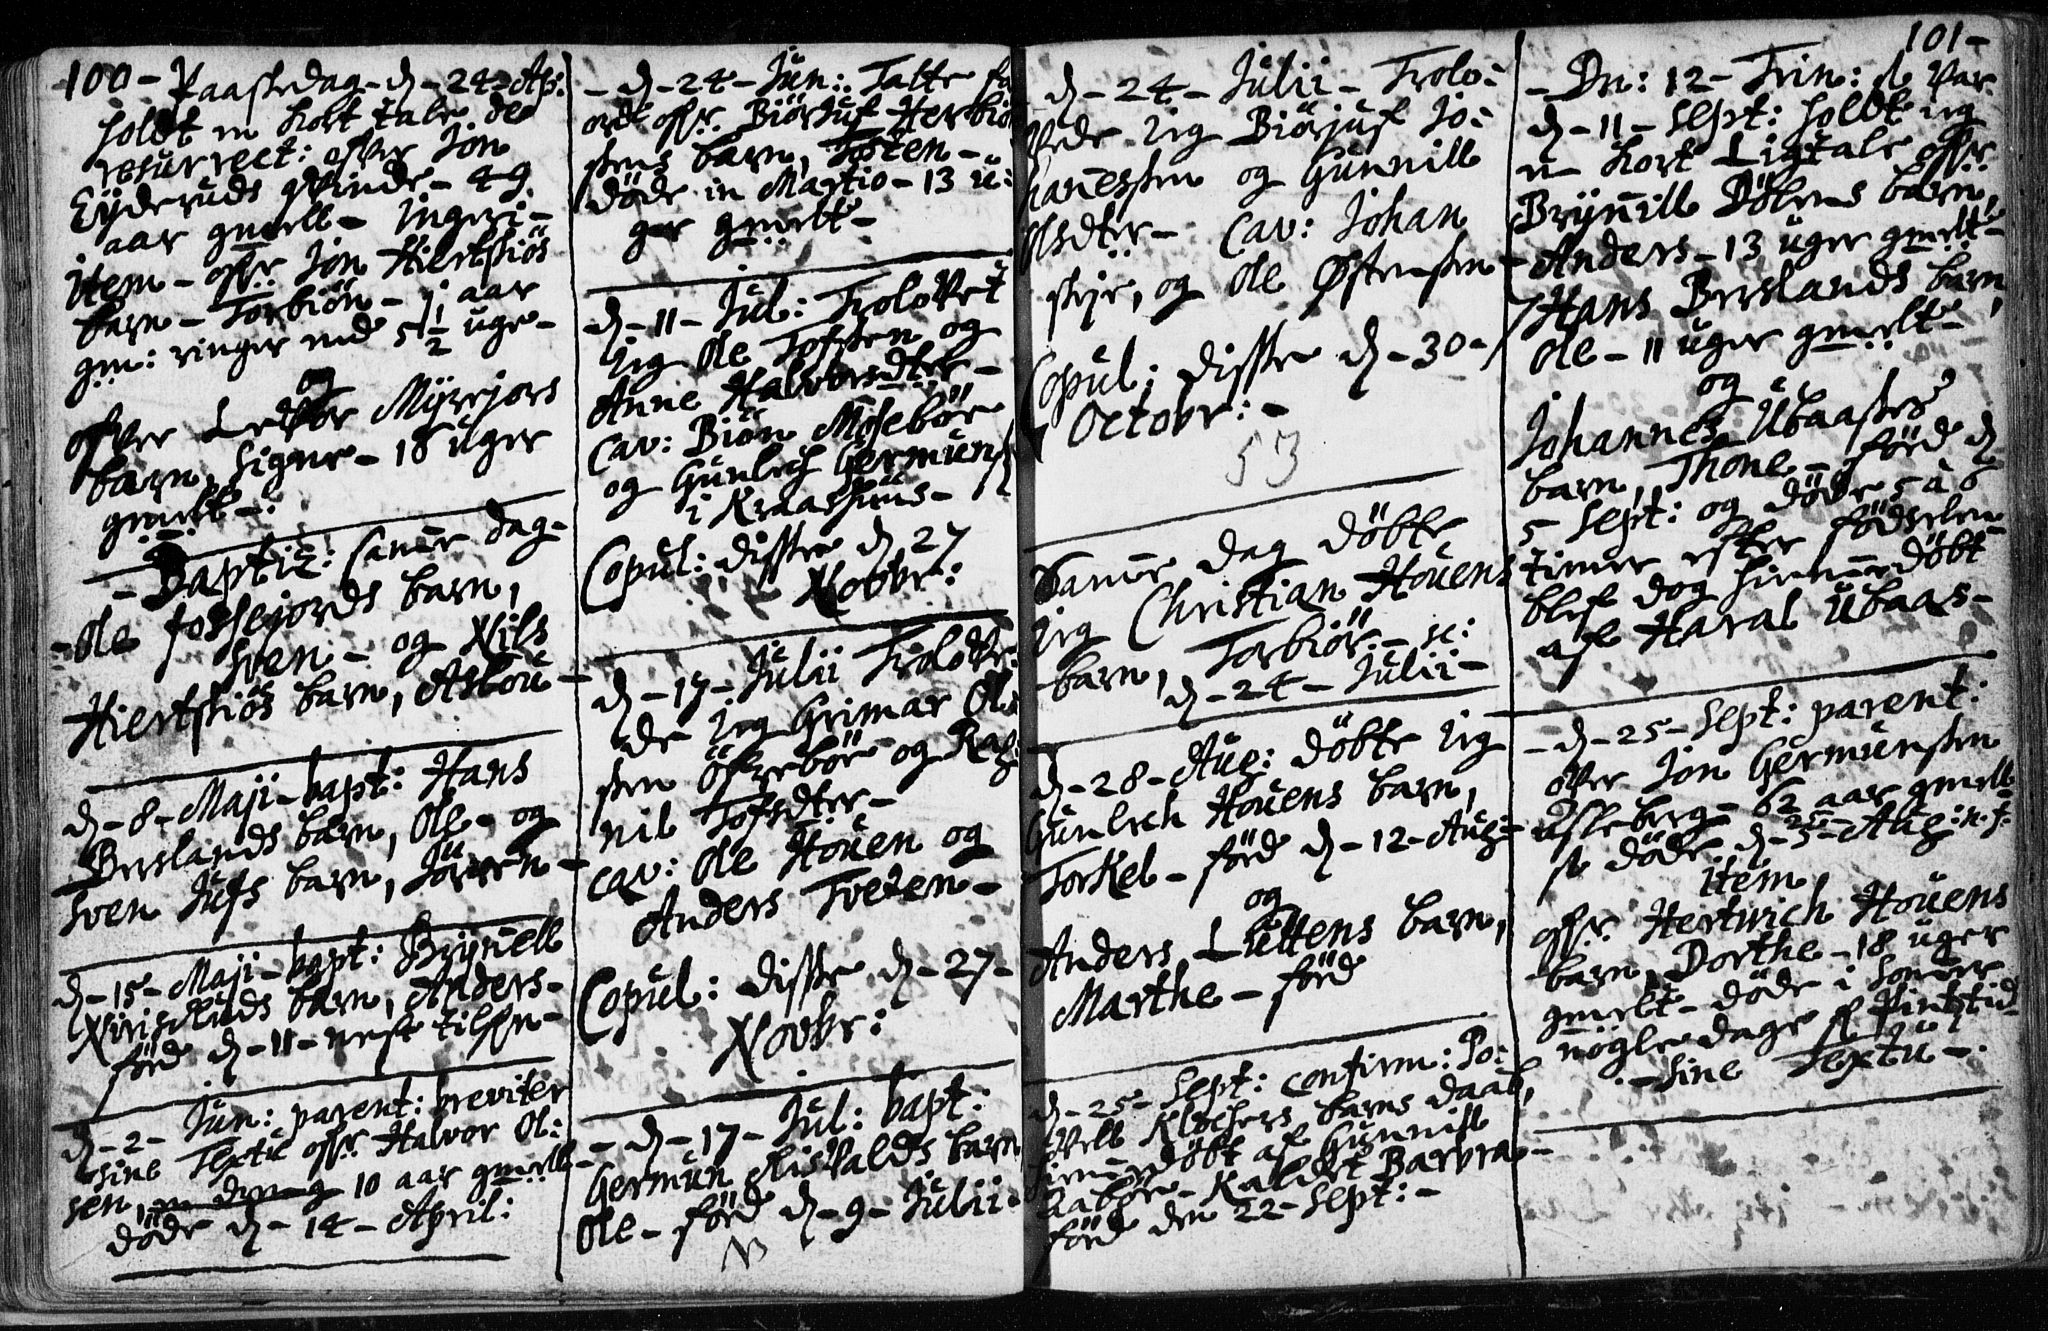 100 - Paaskedag - d - 24 - Ap:
holdt en kort tale de
resurrect: ofver Jon
Eyderuds qvinde - 49
aar gmell - Ingeri -
Item - ofvr Jon Hiertsiös
barn - Torbiör - 1 1/2 aar
gm: ringer end 5 1/2 uge -
og
ofver Myrejors
barn, Signe - 18 uger
gmelt - :
- Baptiz: samme dag -
- Ole fossejords barn,
Sven - og Nils
Hiertsiös barn, Aslou -
d - 8 - Maji - bapt: Hans
Berslands barn, Ole - og
Sven Jufs barn, Jörren -
d - 15 - Maji - bapt: Brÿnell
barn, Anders -
förd d - 11 - nest tilfor -
d - 2 - Jun: parent: breviter
sine Textu ofvr Halvor Ol:
sen, 10 aar gmell
döde d - 14 - April:
- d - 24 - Jun: Talte
ord ofvr Biörjuf Herbiör
sens barn, Tosten -
döde in Martio - 13 u:
ger gmelt -
d - 11 - Jul: Trolovet
jeg Ole Tofsen og
Anne Halvorsdter -
Cav: Biön Mosebör
og Gunlech Germunds
i Kraashuus -
Copul: disse d 27
Novbr:
d - 17 - Julii Trolove
de jeg Grimar Ol:
sen Öfrebör og Rag:
nil Tofsdter -
cav: Ole Houen og
Anders Tveten -
Copul: disse d - 27 -
Novbr:
- d - 17 - Jul: bapt:
Germun Misvalds barn
Ole - förd d - 9 - Julii -
d - 24 - Julii - Trolo:
vede jeg Biörjuf Jo:
hannessen og Gunnill
Olsdter - Cav: Johan
og Ole Østensen -
Copul: disse d - 30 -
Octobr: -
53
Samme dag döbte
jeg Christian Houens
barn, Torbiör - sc:
d - 24 - Julii -
d - 28 - Aug: döbte jeg
Gunlech Houens barn,
Torkel - förd d - 12 - Aug:
og
Anders Luttens barn,
Marthe - förd
d - 25 - Sept: confirm: Po:
vell Klochers barns daab,
hiemedöbt af Gunnill
Aabör - kaldet Barvra -
förd den 22 - Sept: -
101 -
- Dn: 12 - Trin: d var
d - 11 - Sept: holdt jeg
en kort Ligtale ofvr
Brÿnill Dölens barn,
Anders - 13 uger gmelt -
Hans Berslands barn,
Ole - 11 uger gmelt -
og
Johannes Ubaases
barn, Thone - förd d
5 Sept: og döde 5 à 6
timer efter födselen
blef dog hiemmedöbt
af Haral Ubaas -
- d - 25 - Sept: parent:
over Jon Germunsen
Aasleberg - 62 aar gmell
döde d - 25 - Aug: n. f.
item
ofvr Hertvich Houens
barn, Dorthe - 18 uger
gmelt - döde i
nogle dage f Pintztid
- sine Textu -